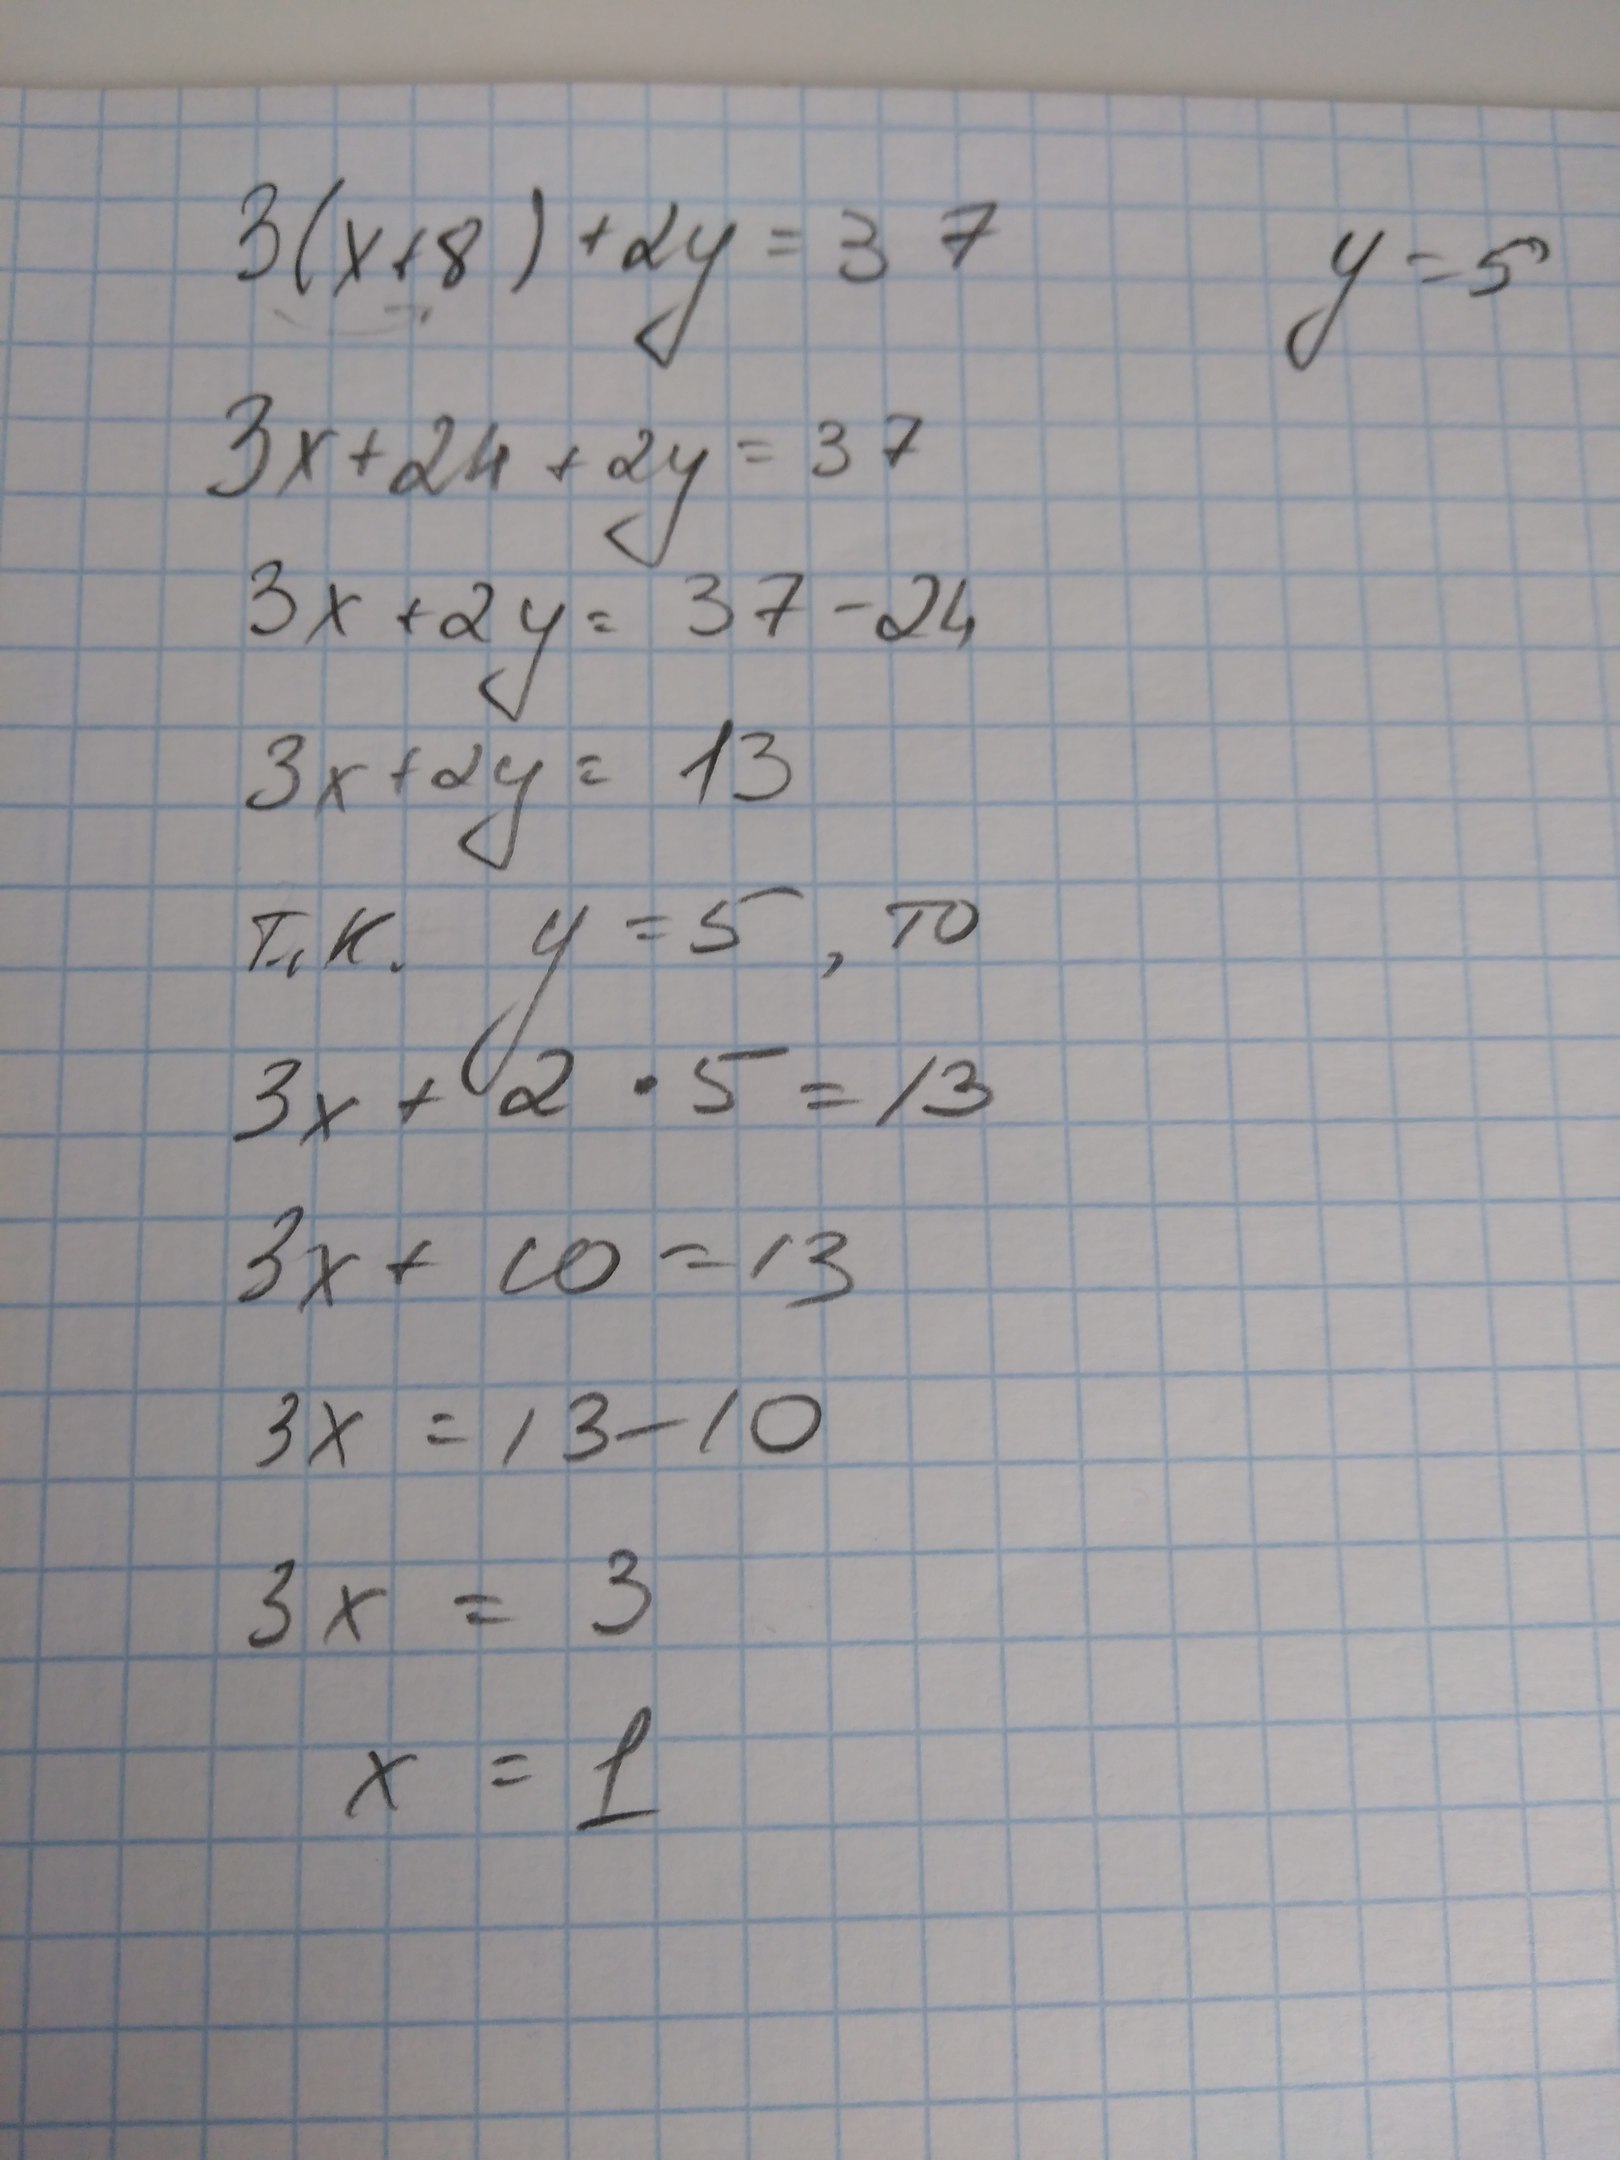 3(x+8)+2y=37 y=5
3x+24+2y=37
3x+2y=37-24
3x+2y=13
т.к. y=5, то
3x+2·5=13
3x+10=13
3x=13-10
3x=3
x=1